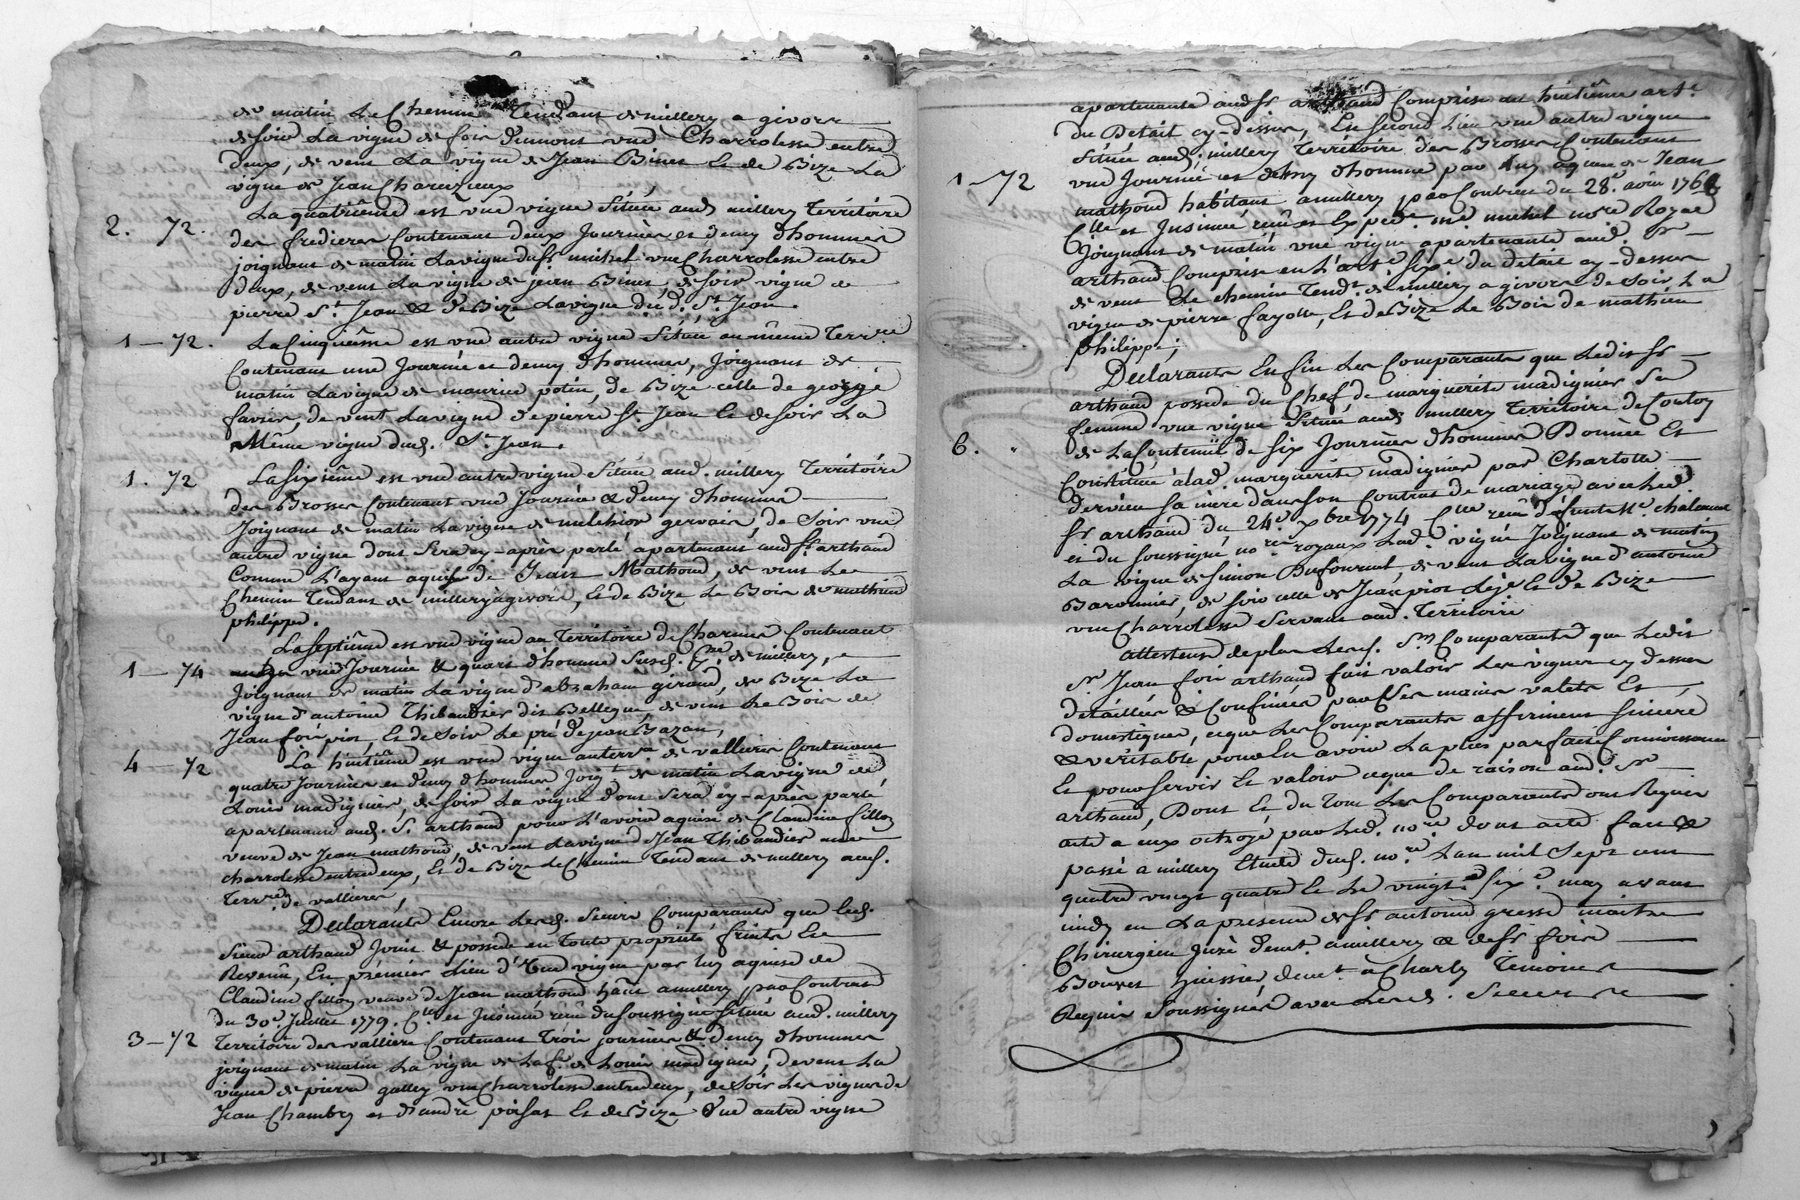 de matin Le Chemin Tendant de millery a givors
de soir La vigne de foir Dumont une Charrolesse entre
deux, de vent La vigne de Jean Binet Et de Bize La
vigne de Jean Chareizieux
2. 72. La quatrième est une vigne Située aud. millery Territoire
des fredieres Contenant deux Journées et demy d'hommes
joignant de matin La vigne du Sr. michel une Charrolesse entre
deux, de vent La vigne de jean Binet de soir vigne a
pierre St. Jean & de Bize La vigne dud. St. Jean.
1 - 72. La Cinquième est une autre vigne Située au même Terr.re
Contenant une Journée et demy d'hommes, Joignant de
matin La vigne de maurice potin, de Bize celle de george
favier, de vent La vigne de pierre St. Jean Et de soir La
Même vigne dud. St. Jean.
1. 72 La Sixième est une autre vigne Située aud. millery Territoire
des Brosses Contenant une Journée & demy d'homme
Joignant de matin La vigne de melchior gervais, de Soir une
autre vigne dont Sera cy-après parlé apartenant aud. Sr. arthaud
Comme L'ayant aquise de Jean Mathoud, de vent Le
Chemin Tendant de millery a givors, Et de Bize Le Bois de mathieu
philippe.
La Septième est une vigne au Territoire de Charmes Contenant
1 - 74 une Journée & quart d'homme Susd. de millery,
Joignant de matin La vigne d'abraham giraud, de Bize La
vigne d'antoine Thibaudier dit Bellegue, de vent Le Bois de
Jean foir piot, Et de Soir Le pré de jean Bazan,
4 - 72 La huitième est une vigne au terr.re de vallieres Contenant
quatre Journées et demy d'hommes Joig.t de matin La vigne de
Louis madignier, de Soir La vigne dont Sera cy-après parlé
apartenant aud. Sr. arthaud pour L'avoir aquise de Claudine fillon
veuve de Jean mathoud, de vent La vigne de Jean Thibaudier une
charrolesse entre deux, Et de Bize Le Chemin Tendant de millery aud.
Terr.re de vallieres,
Déclarants Encore Lesd. Sieurs Comparants que Led.
Sieur arthaud Jouit & possede en Toute proprieté, fruits Et
Revenu, En premier Lieu d'une vigne par luy aquise de
Claudine fillon veuve de Jean mathoud hâbt. a millery par Contrat
du 30e. Juillet 1779. C.llé et Jnsinué reçu du Soussigné Située aud. millery
3 - 72 Territoire des vallieres Contenant Trois journées & demy d'hommes
joignant de matin La vigne de La f. de Louis madignier, de vent La
vigne de pierre galley une Charrolesse entre deux, de Soir Les vignes de
Jean Chambry et d'andré poisat Et de Bize Une autre vigne
apartenante aud. Sr arthaud Comprise au huitième art.e
du Détail cy-dessus, En Second Lieu une autre vigne
Située aud. millery Territoire des Brosses Contenant
1 - 72 une Journée et demy d'homme par Luy aquise de Jean
mathoud habitant a millery par Contrat du 28e. aoûst 1768
C.llé et Jnsinué reçu et Expéd.é me. michel no.re Royal
Joignant de matin une vigne apartenante aud. Sr
arthaud Comprise en L'art.e Six.e du détail cy-dessus
de vent Le chemin Tend.t de millery a givors de Soir La
vigne de pierre fayolle, Et de Bize Le Bois de mathieu
philippe;
Déclarants Enfin Les Comparants que Ledit Sr
arthaud possede du Chef de marguerite madignier Sa
femme une vigne Située aud. millery Territoire de Coutoy
6. de La Contenue de Six Journées d'hommes Donnée Et
Constituée a lad. marguerite madignier par Charlotte
dervieu Sa mère dans Son Contrat de mariage avec Led.
Sr arthaud du 24e. xbre 1774 C.llé reçu défunt Me. chatanier
et du Soussigné no.res royaux Lad. vigne Joignant de matin
La vigne de Simon Dufournel, de vent La vigne d'antoine
Baronnier, de soir celle de Jean piot Léjé Et de Bize
une Charrolesse Servant aud. Territoire
attestent de plus Lesd. Srs Comparants que Ledit
Sr. Jean foir arthaud fait valoir Les vignes cy dessus
détaillées & Confinées par Ses mains valets Et
domestiques, ce que Les Comparants affirment Sincere
& véritable pour En avoir La plus parfaite Connoissance
Et pour Servir Et valoir ce que de raison aud. Sr
arthaud, Dont Et du Tout Les Comparants ont Requis
acte a eux octroyé par Led. no.re dont acte fait &
passé a millery Etude dud. no.re L'an mil Sept cent
quatre vingt quatre Et Le vingt Six.e may avant
midy en La presence de Sr antoine gresse maitre
Chirurgien Juré demt. a millery & de Sr foir
Bouvet huissier, demt. a Charly Temoins
Requis Soussignés avec Lesd. Sieurs